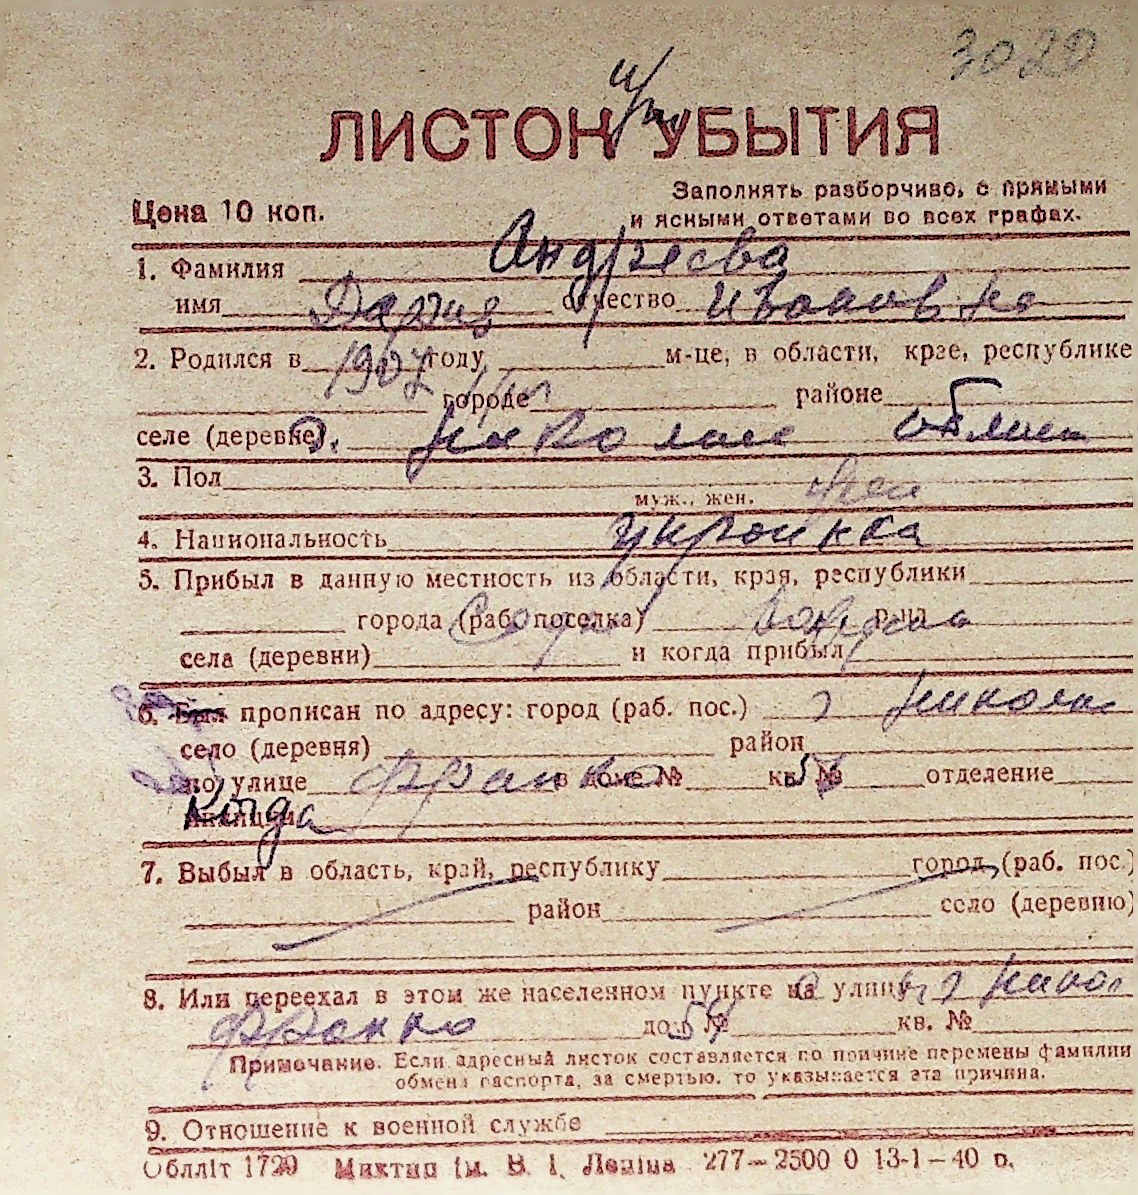 3020
ЛИСТОК УБЫТИЯ
Цена 10 коп.
Заполнять разборчиво, с прямыми
и ясными ответами во всех графах.
1. Фамилия Андреева
имя Дария отчество Ивановна
2. Родился в 1907 году м-це, в области, крае, республике
городе районе
селе (деревне)
3. Пол муж., жен. жен
4. Национальность украинка
5. Прибыл в данную местность из области, края, республики
города (раб. поселка) р-на
села (деревни) и когда прибыл
6. Был прописан по адресу: город (раб. пос.) г Никола
село (деревня) район
по улице Франко в доме № 54 кв. № отделение
милиции Когда
7. Выбыл в область, край, республику город (раб. пос.)
район село (деревню)
8. Или переехал в этом же населенном пункте на улицу
Франко дом № 54 кв. №
Примечание. Если адресный листок составляется по причине перемены фамилии
обмена паспорта, за смертью, то указывается эта причина.
9. Отношение к военной службе
Обллiт 1729 Миктип iм. В. I. Ленiна 277—2500 0 13-1—40 р.